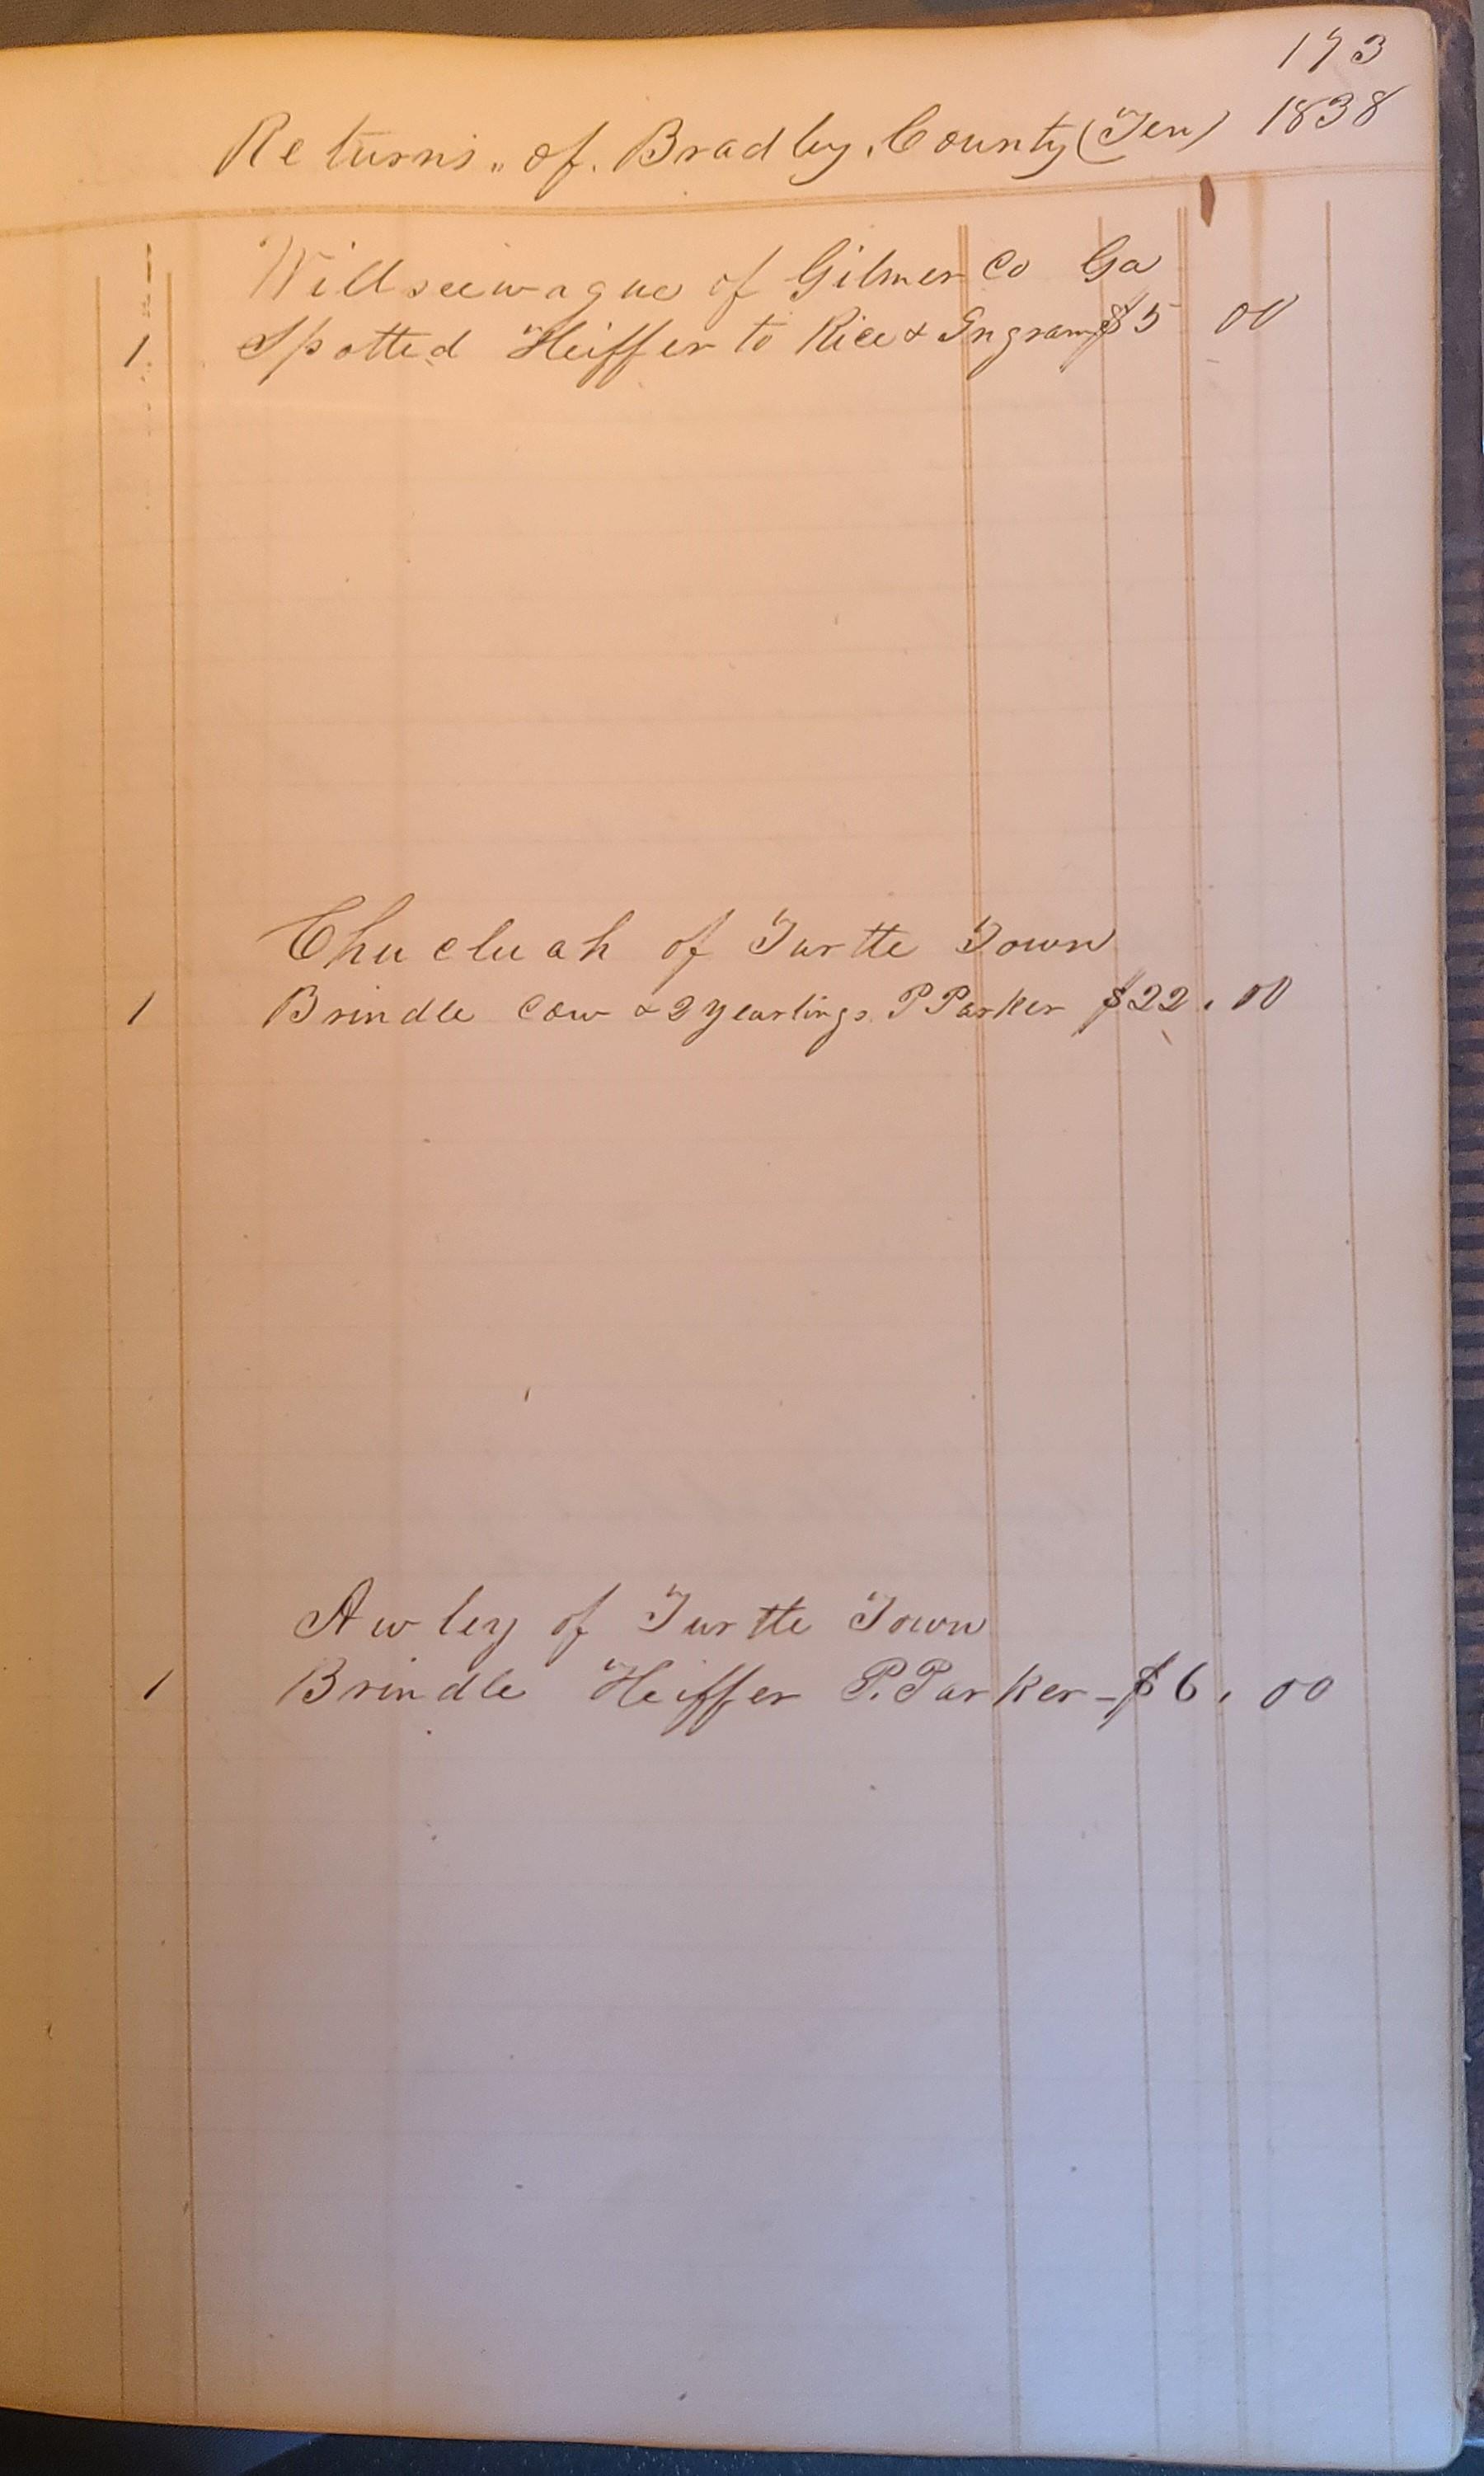 173
Returns „ of. Bradley. County (Ten) 1838
Willseewague of Gilmer Co Ga
1 Spotted Heiffer to Rice & Ingram $5 00
Chucluah of Turtle Town
1 Brindle Cow & 2 yearlings. P Parker $22. 00
Awley of Turtle Town
1 Brindle Heiffer P. Parker - $6. 00